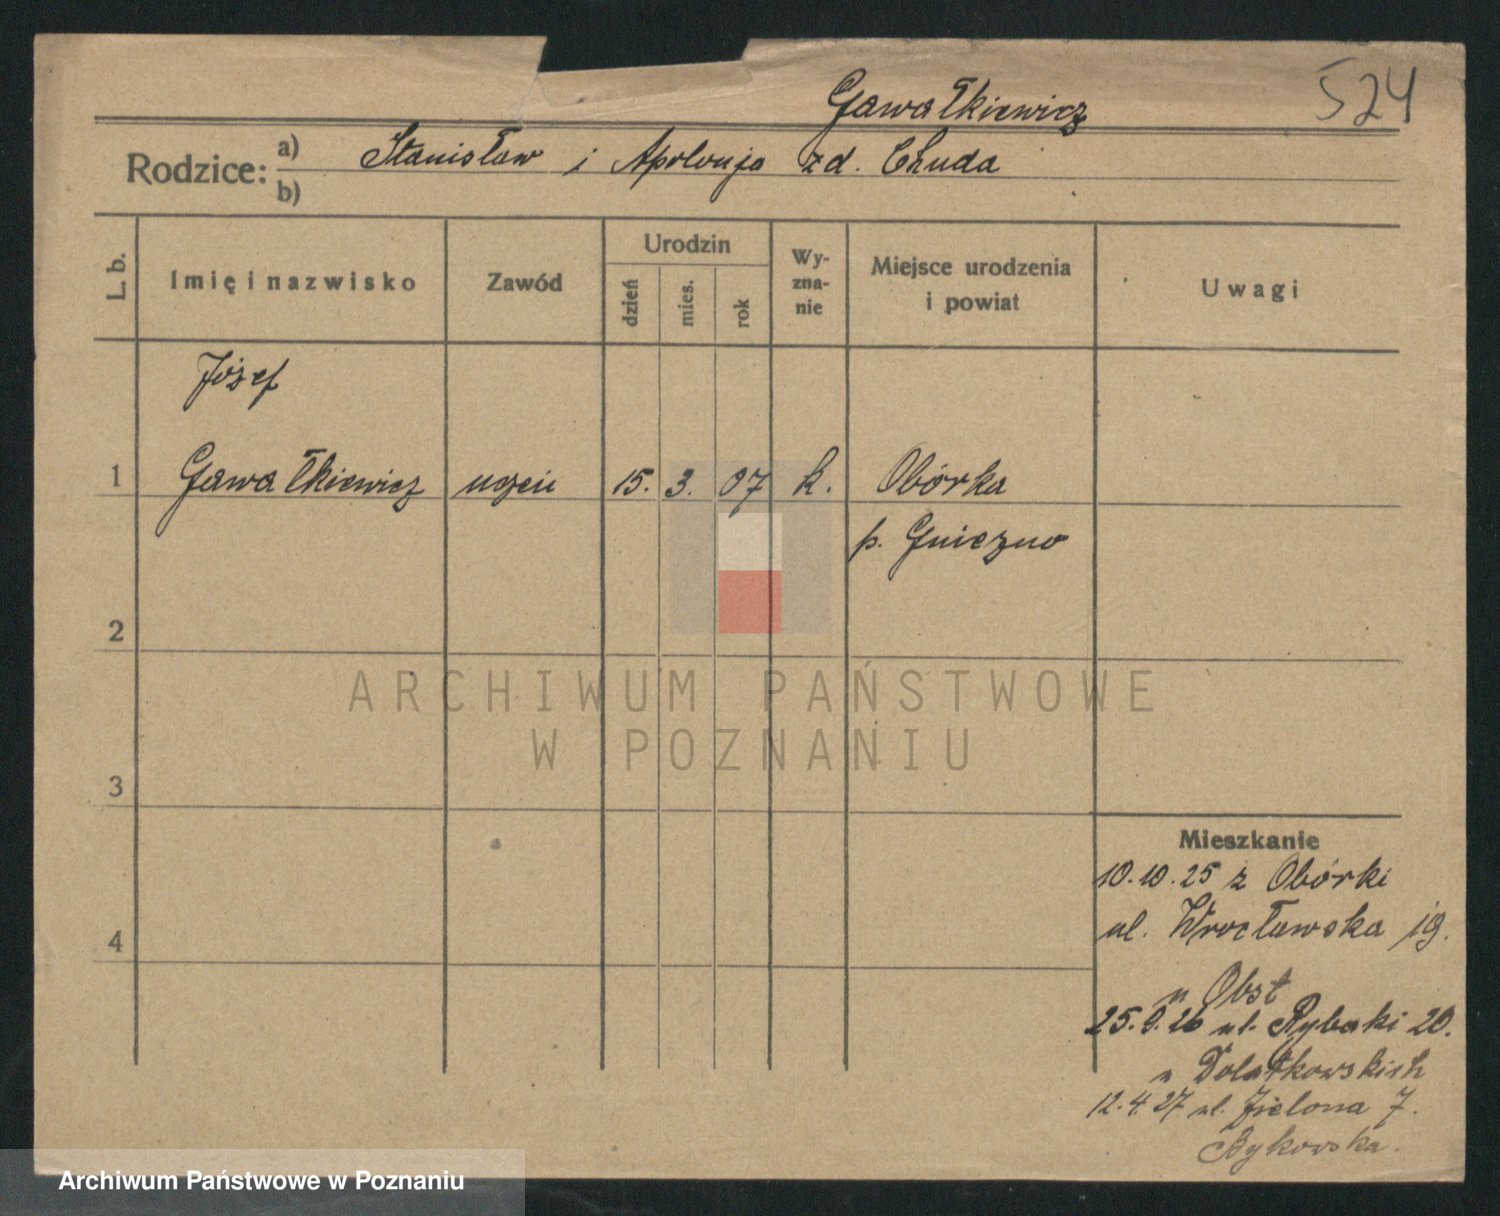 524
Gawałkiewicz
Rodzice: a) Stanisław i Apolonja zd. Chuda
b)
L. b. Imię i nazwisko Zawód Urodzin dzień mies. rok Wy-zna-nie Miejsce urodzenia i powiat Uwagi
Józef
1 Gawałkiewicz uczeń 15. 3. 07 k. Obórka
p. Gniezno
2
ARCHIWUM PAŃSTWOWE
W POZNANIU
3
Mieszkanie
10.10.25 z Obórki
4 ul. Wrocławska 19.
u Obst
25.9.26 ul. Rybaki 20.
u Dolatkowskich
12.4.27 ul. Zielona 7.
Bykowska.
Archiwum Państwowe w Poznaniu